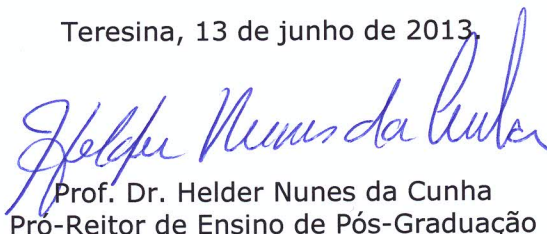 Teresina, 13 de junho de 2013.
Helder Nunes da Cunha
Prof. Dr. Helder Nunes da Cunha
Pró-Reitor de Ensino de Pós-Graduação